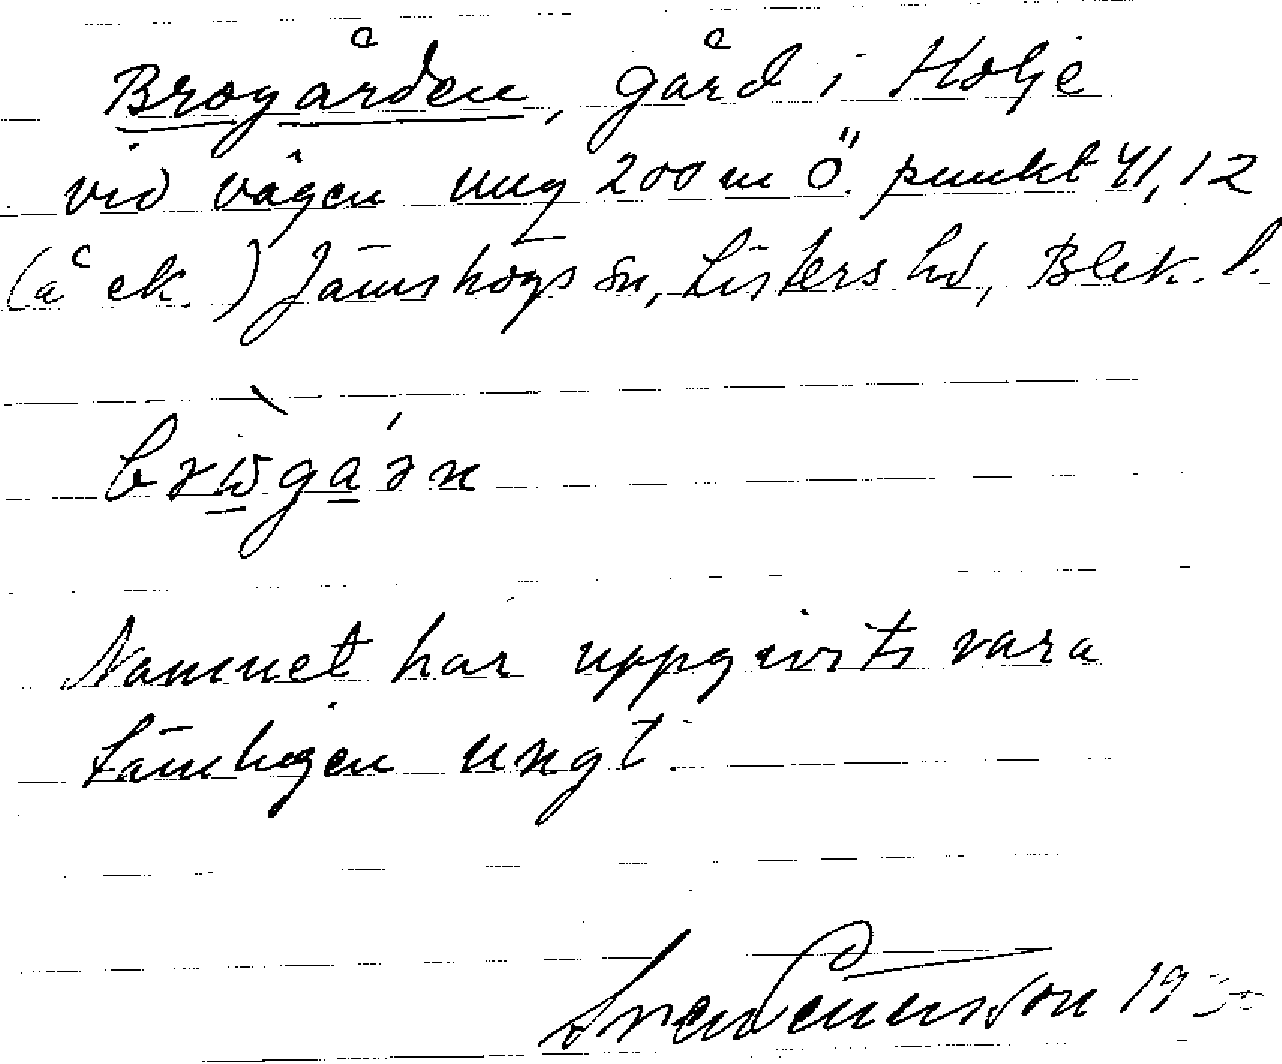 Brogården, gård i Holje
vid vägen ung 200 m Ö. punkt 41,12
(å ek.) Jämshögs sn, Listers hd, Blek. l.
Namnet har uppgivits vara
tämligen ungt.
Sven 19